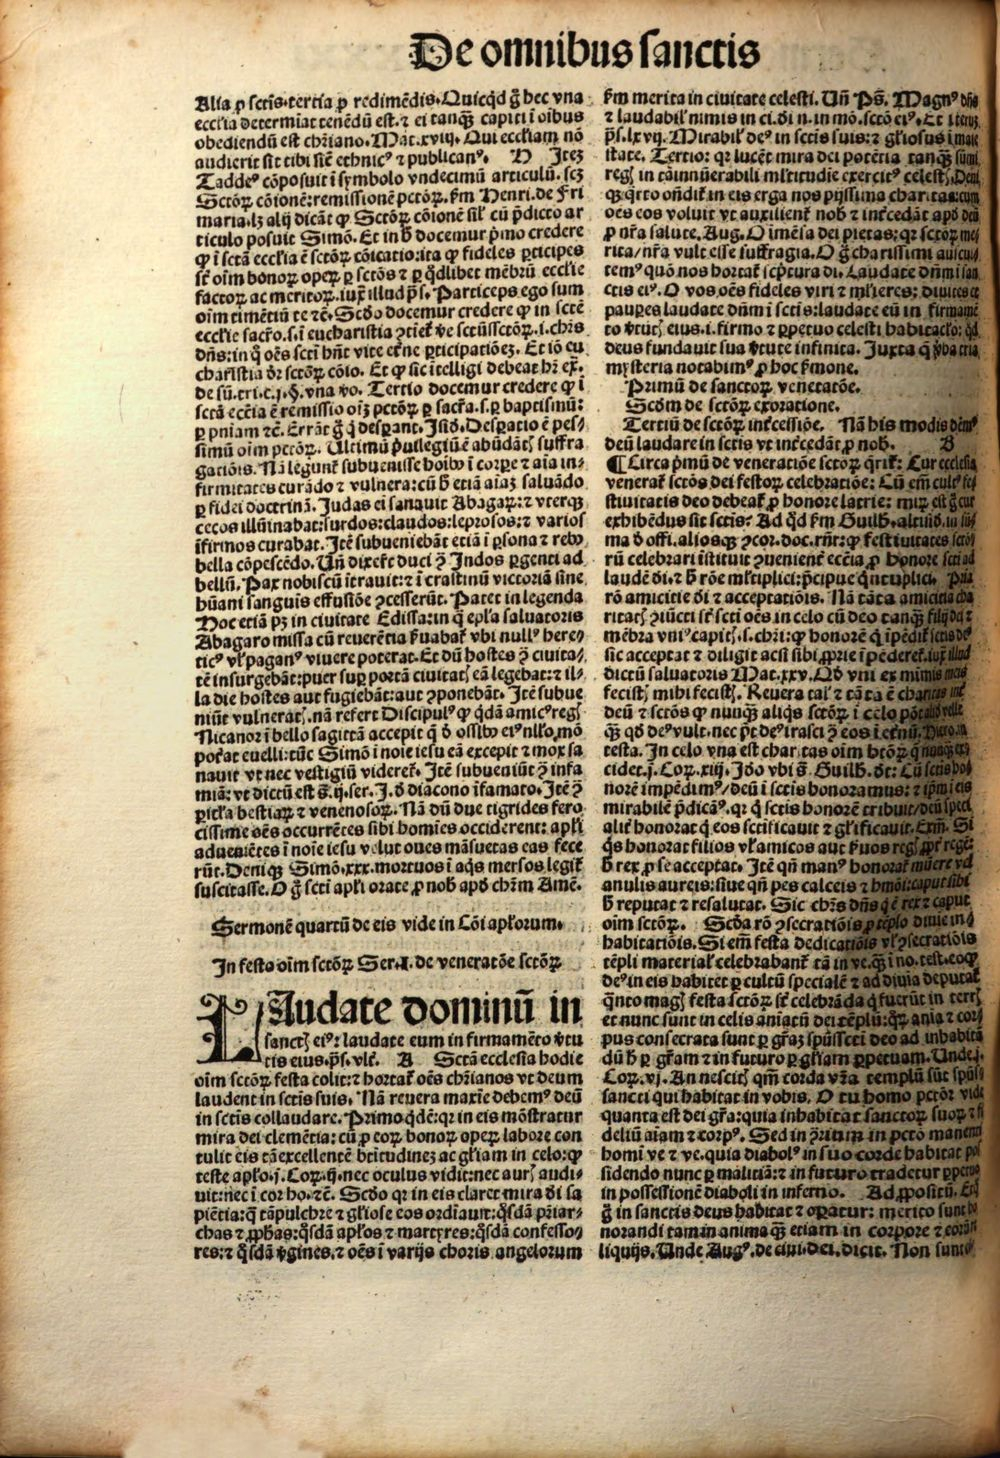 De omnibus sanctis
Alia ꝓ sctīs. tertia ꝓ redimēdis. Quicqd g̃ hec vna
eccl̃ia determīat tenēdū est. ⁊ ei tanq̃ꝫ capiti ī oībus
obediendū est chr̃iano. Mat. xviij. Qui eccl̃iam nō
audierit sit tibi sic̄ ethnicꝰ ⁊ publicanꝰ. D Itez
Taddeꝰ cōposuit ī symbolo vndecimū articulū. scz
Sctōꝝ cōionē: remissionē pctōꝝ. fm Henri. de Fri
maria. lz alij dicāt ꝙ Sctōꝝ cōionē sil̃ cū p̄dicto ar
ticulo posuit Simō. Et in h̄ docemur p̄mo credere
ꝙ ī sctā eccl̃ia ē sctōꝝ cōicatio: ita ꝙ fideles ꝑticipes
st̃ oīm bonoꝝ opeꝝ ꝑ sctōs ⁊ ꝑ qdlibet mēbrū eccl̃ie
factoꝝ ac meritoꝝ. iuꝑ illud p̄s. Particeps ego sum
oīm timētiū te ⁊c̄. Scdo docemur credere ꝙ in sctē
eccl̃ie sacr̃o. s. ī eucharistia ꝯtiet̃ ve sctūssctōꝝ. i. chr̃s
dñs: in q̄ oēs scti hñt vite et̃ne ꝑticipatiōez. Et iō eu
charistia dr̃ sctōꝝ cōio. Et ꝙ sic ītelligi debeat hr̃ ex̃.
de sū. tri. c. j. §. vna v̄o. Tertio docemur credere ꝙ ī
sctā ecc̄ia ē remissio oīz pctōꝝ ꝑ sacr̃a. s. ꝑ baptismū:
ꝑ pniam ⁊c̄. Errāt g̃ q̄ desꝑant. Isid. Desꝑatio ē pes
simū oīm pctōꝝ. Ultimū p̄uilegiū ē abūdātꝭ suffra
gatiōis. Nā legunt̃ subuenisse hoībꝰ ī corꝑe ⁊ aīa in⸗
firmitates curādo ⁊ vulnera: cū h̄ etiā aīaz saluādo
ꝑ fidei doctrinā. Judas ei sanauit Abagaꝝ: ⁊ vterqꝫ
cecos illūinabāt: surdos: claudos: leprosos: ⁊ varios
īfirmos curabāt. Itē subueniebāt etiā ī ꝑsona ⁊ rebꝰ
bella cōpescēdo. Uñ dixer̃t duci ꝯ̃ Indos ꝑgenti ad
bellū. Pax nobiscū ītrauit: ⁊ ī crastinū victoriā sine
hūani sanguīs effusiōe ꝯcesserūt. Patet in legenda
Hoc etiā pꝫ in ciuitate Edissa: in q̄ epl̃a saluatoris
Abagaro missa cū reuerētia p̄uabat̃ vbi nullꝰ here⸗
ticꝰ vl̃ paganꝰ viuere poterat. Et dū hostes ꝯ̃ ciuita⸗
tē insurgebāt: puer suꝑ portā ciuitatꝭ eā legebat: ⁊ il⸗
la die hostes aut fugiebāt: aut ꝯponebāt. Itē subue
niūt vulneratꝭ. nā refert Discipulꝰ ꝙ qdā amicꝰ regꝭ
Nicanor ī bello sagittā accepit q̄ d̄ ossibꝰ eiꝰ nl̃lo mō
pot̃at euelli: tūc Simō ī noīe iesu eā excepit ⁊ mox sa
nauit vt nec vestigiū videret̃. Itē subueniūt ꝯ̃ infa
miā: vt dictū est s̄. ij. ser. J. d̄ diacono īfamato. Itē ꝯ̃
ꝑicl̃a bestiaꝝ ⁊ venenosoꝝ. Nā dū due tigrides fero
cissime oēs occurrētes sibi homīes occiderent: apl̃i
adueniētes ī noīe iesu velut oues māsuetas eas fece
rūt. Deniqꝫ Simō. xxx. mortuos ī aqs mersos legit̃
suscitasse. O g̃ scti apl̃i orate ꝓ nob̄ apd̄ chr̃m Amē.
Sermonē quartū de eis vide in Cōi apl̃orum.
In festo oīm sctōꝝ Ser. I. de veneratōe sctōꝝ
LAudate dominū in
sanctꝭ eiꝰ: laudate eum in firmamēto v̄tu
tis eius. p̄s. vlt̃. A Sctā ecclesia hodie
oīm sctōꝝ festa colit: ⁊ hortat̃ oēs chr̃ianos vt deum
laudent in sctis suis. Nā reuera maxīe debemꝰ deū
in sctis collaudare. Primo qdē: qꝛ in eis mōstratur
mira dei clemētia: cū ꝓ eoꝝ bonoꝝ opeꝝ labore con
tulit eis tā excellentē btitudinez ac gl̃iam in celo: ꝙ
teste apl̃o. j. Coꝝ. ij. nec oculus vidit: nec aurꝭ audi⸗
uit: nec ī cor ho. ⁊c̄. Scdo qꝛ in eis claret mira di sa
piētia: q̄ tā pulchre ⁊ gl̃iose eos ordīauit: q̄sdā pr̃iar⸗
chas ⁊ ꝓphas: q̄sdā apl̃os ⁊ martyres: q̄sdā confesso⸗
res: ⁊ q̄sdā v̄gines. ⁊ oēs ī varijs choris angelorum
fm merita in ciuitate celesti. Uñ Ps̄. Magnꝰ dñs
⁊ laudabil̃ nimis in ci. di n. in mō. sctō eiꝰ. Et iterum
p̄s. lxvij. Mirabil̃ deꝰ in sctis suis: ⁊ gl̃iosus ī maie
state. Tertio: qꝛ lucēt mira dei potētia tanq̃ꝫ sūmi
regꝭ in tā innūerabili ml̃titudīe exercitꝰ celestꝭ. Deni
qꝫ q̄rto oñdit̃ in eis erga nos pijssima charitas: cum
oēs eos voluit vt auxilient̃ nob̄ ⁊ int̃cedāt apd̄ deū
ꝓ nr̃a salute. Aug. O īmēsa dei pietas: qꝛ sctōꝝ me⸗
rita/ nr̃a vult esse suffragia. O g̃ charissimi auscul
temꝰ quō nos hortat̃ sc̄ptura di. Laudate dñm ī san
ctis eiꝰ. O vos oēs fideles viri ⁊ ml̃ieres: diuites et
pauꝑes laudate dñm ī sctis: laudate eū in firmamē
to v̄tutꝭ eius. i. firmo ⁊ ꝑpetuo celesti habitacl̃o: qd̄
deus fundauit sua v̄tute infinita. Juxta q̄ v̄ba tria
mysteria notabimꝰ ꝓ hoc s̄mone.
Primū de sanctoꝝ veneratōe.
Scdm de sctōꝝ exoratione.
Tertiū de sctōꝝ int̃cessiōe. Nā his modis dēmꝰ
deū laudare in sctis vt int̃cedāt ꝓ nob̄. B
¶ Circa p̄mū de veneratiōe sctōꝝ q̄rit̃: Cur ecclesia
venerat̃ sctōs dei festoꝝ celebratiōe: Cū em̃ cultꝰ fe
stiuitatis deo debeat̃ ꝓ honore latrie: miꝝ est g̃ cur
exhibēdus sit sctis? Ad qd̄ fm Guilh. altisid. in sū
ma d̄ offi. aliosqꝫ ꝯcor. doc. rñr: ꝙ festiuitates sctō
rū celebrari īstituit ꝯuenient̃ ecc̄ia ꝓ honore scti ad
laudē di. ⁊ h̄ rōe ml̃tiplici: p̄cipue qntuplici. Prīa
rō amicitie di ⁊ acceptatiōis. Nā tāta amicitia cha
ritatꝭ ꝯiūcti st̃ scti oēs in celo cū deo tanq̃ꝫ filij dei ⁊
mēbra vniꝰ capitꝭ. s. chr̃i: ꝙ honorē q̄ īpēdit̃ sctis deꝰ
sic acceptat ⁊ diligit acsi sibi ꝓprie īpēderet̃. iux̃ illud
dictū saluatoris Mat. xxv. Qd̄ vni ex minimis meis
fecistꝭ mihi fecistꝭ. Reuera talꝭ ⁊ tāta ē charitas int̃
deū ⁊ sctōs ꝙ nunqꝫ aliqs sctōꝝ ī celo pōt aliud velle
q̃ꝫ qd̄ deꝰ vult. nec pōt deꝰ irasci ꝯ̃ eos ī et̃nū. Hiero. in
testa. In celo vna est charitas oīm btōꝝ q̄ nunqꝫ ex
cidet. j. Coꝝ. xiij. Ido vbi s̄. Guilh. dt: Cū sctis ho⸗
norē impēdimꝰ/ deū ī sctis honoramus: ⁊ ip̄m ī eis
mirabilē p̄dicāꝰ. qꝛ q̄ sctis honorē tribuit/ deū speci
alit̃ honorat q̄ eos sctificauit ⁊ gl̃ificauit. Exm̃. Si
qs honorat filios vl̃ amicos aut s̄uos regꝭ ꝓpt̃ regē:
h̄ rex ꝓ se acceptat. Itē qñ manꝰ honorat̃ mūere vel
anulis aureis: siue qñ pes calceis ⁊ hmōi: caput sibi
h̄ reputat ⁊ resalutat. Sic chr̃s dñs q̄ ē rex ⁊ caput
oīm sctōꝝ. Scdā rō ꝯsecratiōis ꝓ tēplo diuīe in⸗
habitatiōis. Si em̃ festa dedicatiōis vl̃ ꝯsecratiōis
tēpli material̃ celebrabant̃ tā in ve. q̃ꝫ ī no. test. eo ꝙ
deꝰ in eis habitet ꝑ cultū specialē ⁊ ad diuīa deputat̃
q̄nto magꝭ festa sctōꝝ st̃ celebrāda q̄ fuerūt in terrꝭ
et nunc sunt in celis aniātū dei tēplū: qꝝ aīa ⁊ cor
pus consecrata sunt ꝑ gr̃az spūssctī deo ad inhabitā
dū h̄ ꝑ gr̃am ⁊ in futuro ꝑ gl̃iam ꝑpetuam. Unde. j.
Coꝝ. vj. An nescitꝭ qm̃ corda vr̃a templū sūt spūs
sancti qui habitat in vobis. O tu homo pctōr vide
quanta est dei gr̃a: quia inhabitat sanctoꝝ suoꝝ ⁊ fi
deliū aīam ⁊ corpꝰ. Sed in ꝯ̃rium in pctō manenti
homī ve ⁊ ve. quia diabolꝰ in suo corde habitat pos
sidendo nunc ꝑ malitiā: ⁊ in futuro tradetur ꝑpetuo
in possessionē diaboli in inferno. Ad ꝓpositū. Er
g̃ in sanctis deus habitat ⁊ oꝑatur: merito sunt ho
norandi tam in anima q̃ꝫ etiam in corpore ⁊ eorum
liquijs. Unde Augꝰ. de ciui. dei. dicit. Non sunt